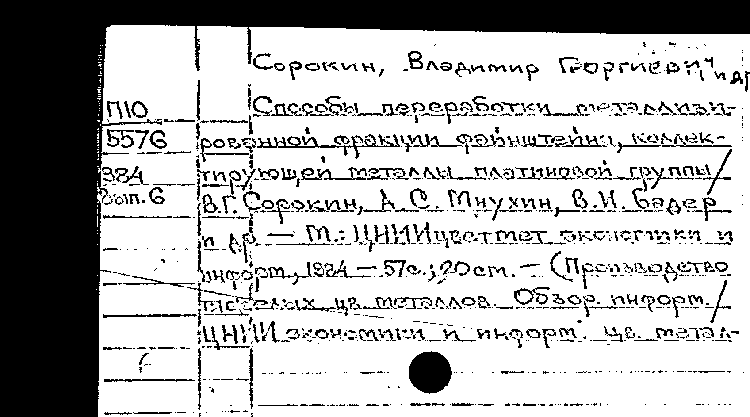 Сорокин, Владимир Георгиевич и др
П10 Способы переработки металлизи-
5576 рованной фракции файнштейна, коллек-
984 тирующей металлы платиновой группы /
Вып. 6 В.Г. Сорокин, А. С. Мнухин, В. И. Бадер
и др — М.: ЦНИИцветмет экономики и
информ, 1984 — 57с.; 20 cm. — (Производство
тяжелых цв. металлов. Обзор. информ. /
ЦНИИ экономики и информ. цв. метал-